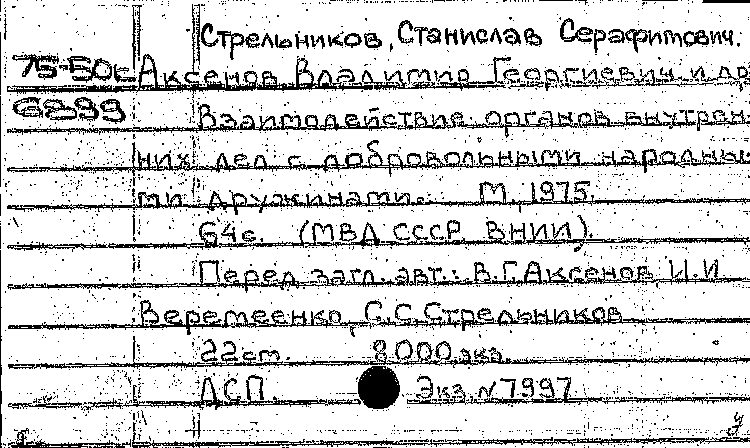 Стрельников, Станислав Серафимович.
75-50с Аксенов, Владимир Георгиевич и др
6899 Взаимодействие органов внутрен-
них дел с добровольными народны-
ми дружинами. М., 1975.
64с. (МВД СССР. ВНИИ).
Перед загл. авт.: В.Г.Аксенов, И.И
Веремеенко, С.С.Стрельников
22см. 8000 экз.
ДСП. Экз. №7997